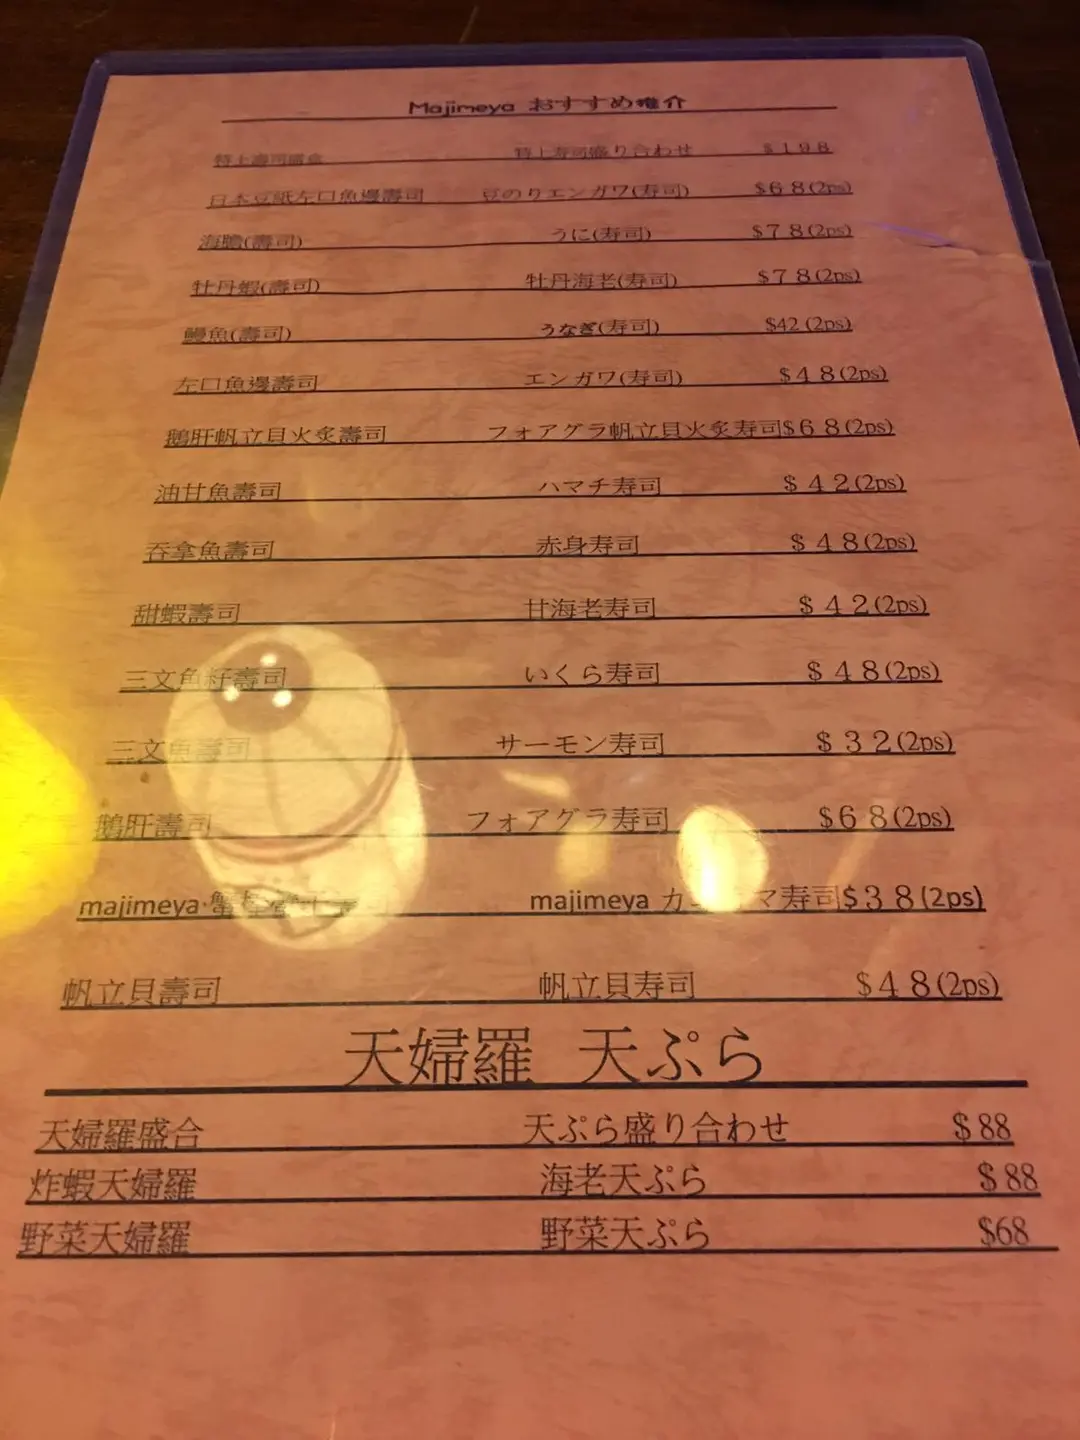 Majimeya おすすめ推介
特上壽司盛合 特上寿司盛り合わせ $198
日本豆紙左口魚邊壽司 豆のりエンガワ(寿司) $68(2ps)
海膽(壽司) うに(寿司) $78(2ps)
牡丹蝦(壽司) 牡丹海老(寿司) $78(2ps)
鰻魚(壽司) うなぎ(寿司) $42(2ps)
左口魚邊壽司 エンガワ(寿司) $48(2ps)
鵝肝帆立貝火炙壽司 フォアグラ帆立貝火炙寿司$68(2ps)
油甘魚壽司 ハマチ寿司 $42(2ps)
吞拿魚壽司 赤身寿司 $48(2ps)
甜蝦壽司 甘海老寿司 $42(2ps)
三文魚籽壽司 いくら寿司 $48(2ps)
三文魚壽司 サーモン寿司 $32(2ps)
鵝肝壽司 フォアグラ寿司 $68(2ps)
majimeya 蟹 majimeya 寿司$38(2ps)
帆立貝壽司 帆立貝寿司 $48(2ps)
天婦羅 天ぷら
天婦羅盛合 天ぷら盛り合わせ $88
炸蝦天婦羅 海老天ぷら $88
野菜天婦羅 野菜天ぷら $68